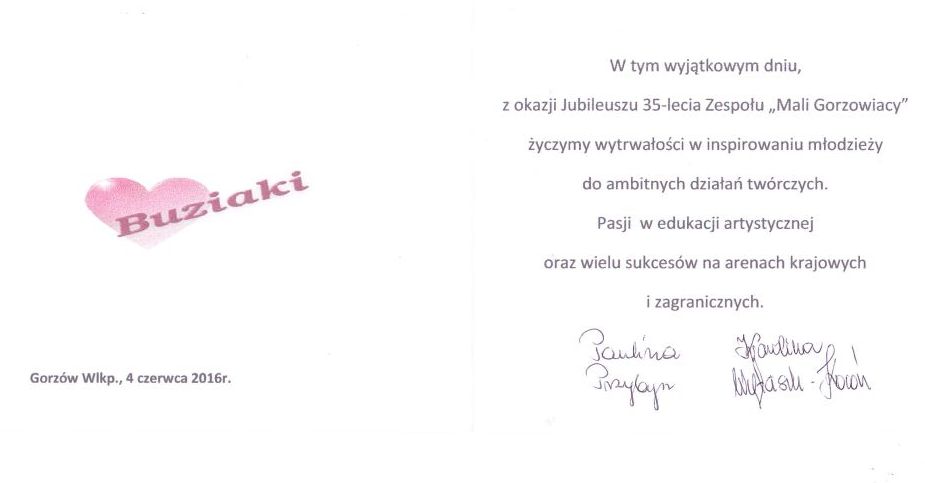 Buziaki
Gorzów Wlkp., 4 czerwca 2016r.
W tym wyjątkowym dniu,
z okazji Jubileuszu 35-lecia Zespołu „Mali Gorzowiacy”
życzymy wytrwałości w inspirowaniu młodzieży
do ambitnych działań twórczych.
Pasji w edukacji artystycznej
oraz wielu sukcesów na arenach krajowych
i zagranicznych.
Paulina Karolina
Przybył